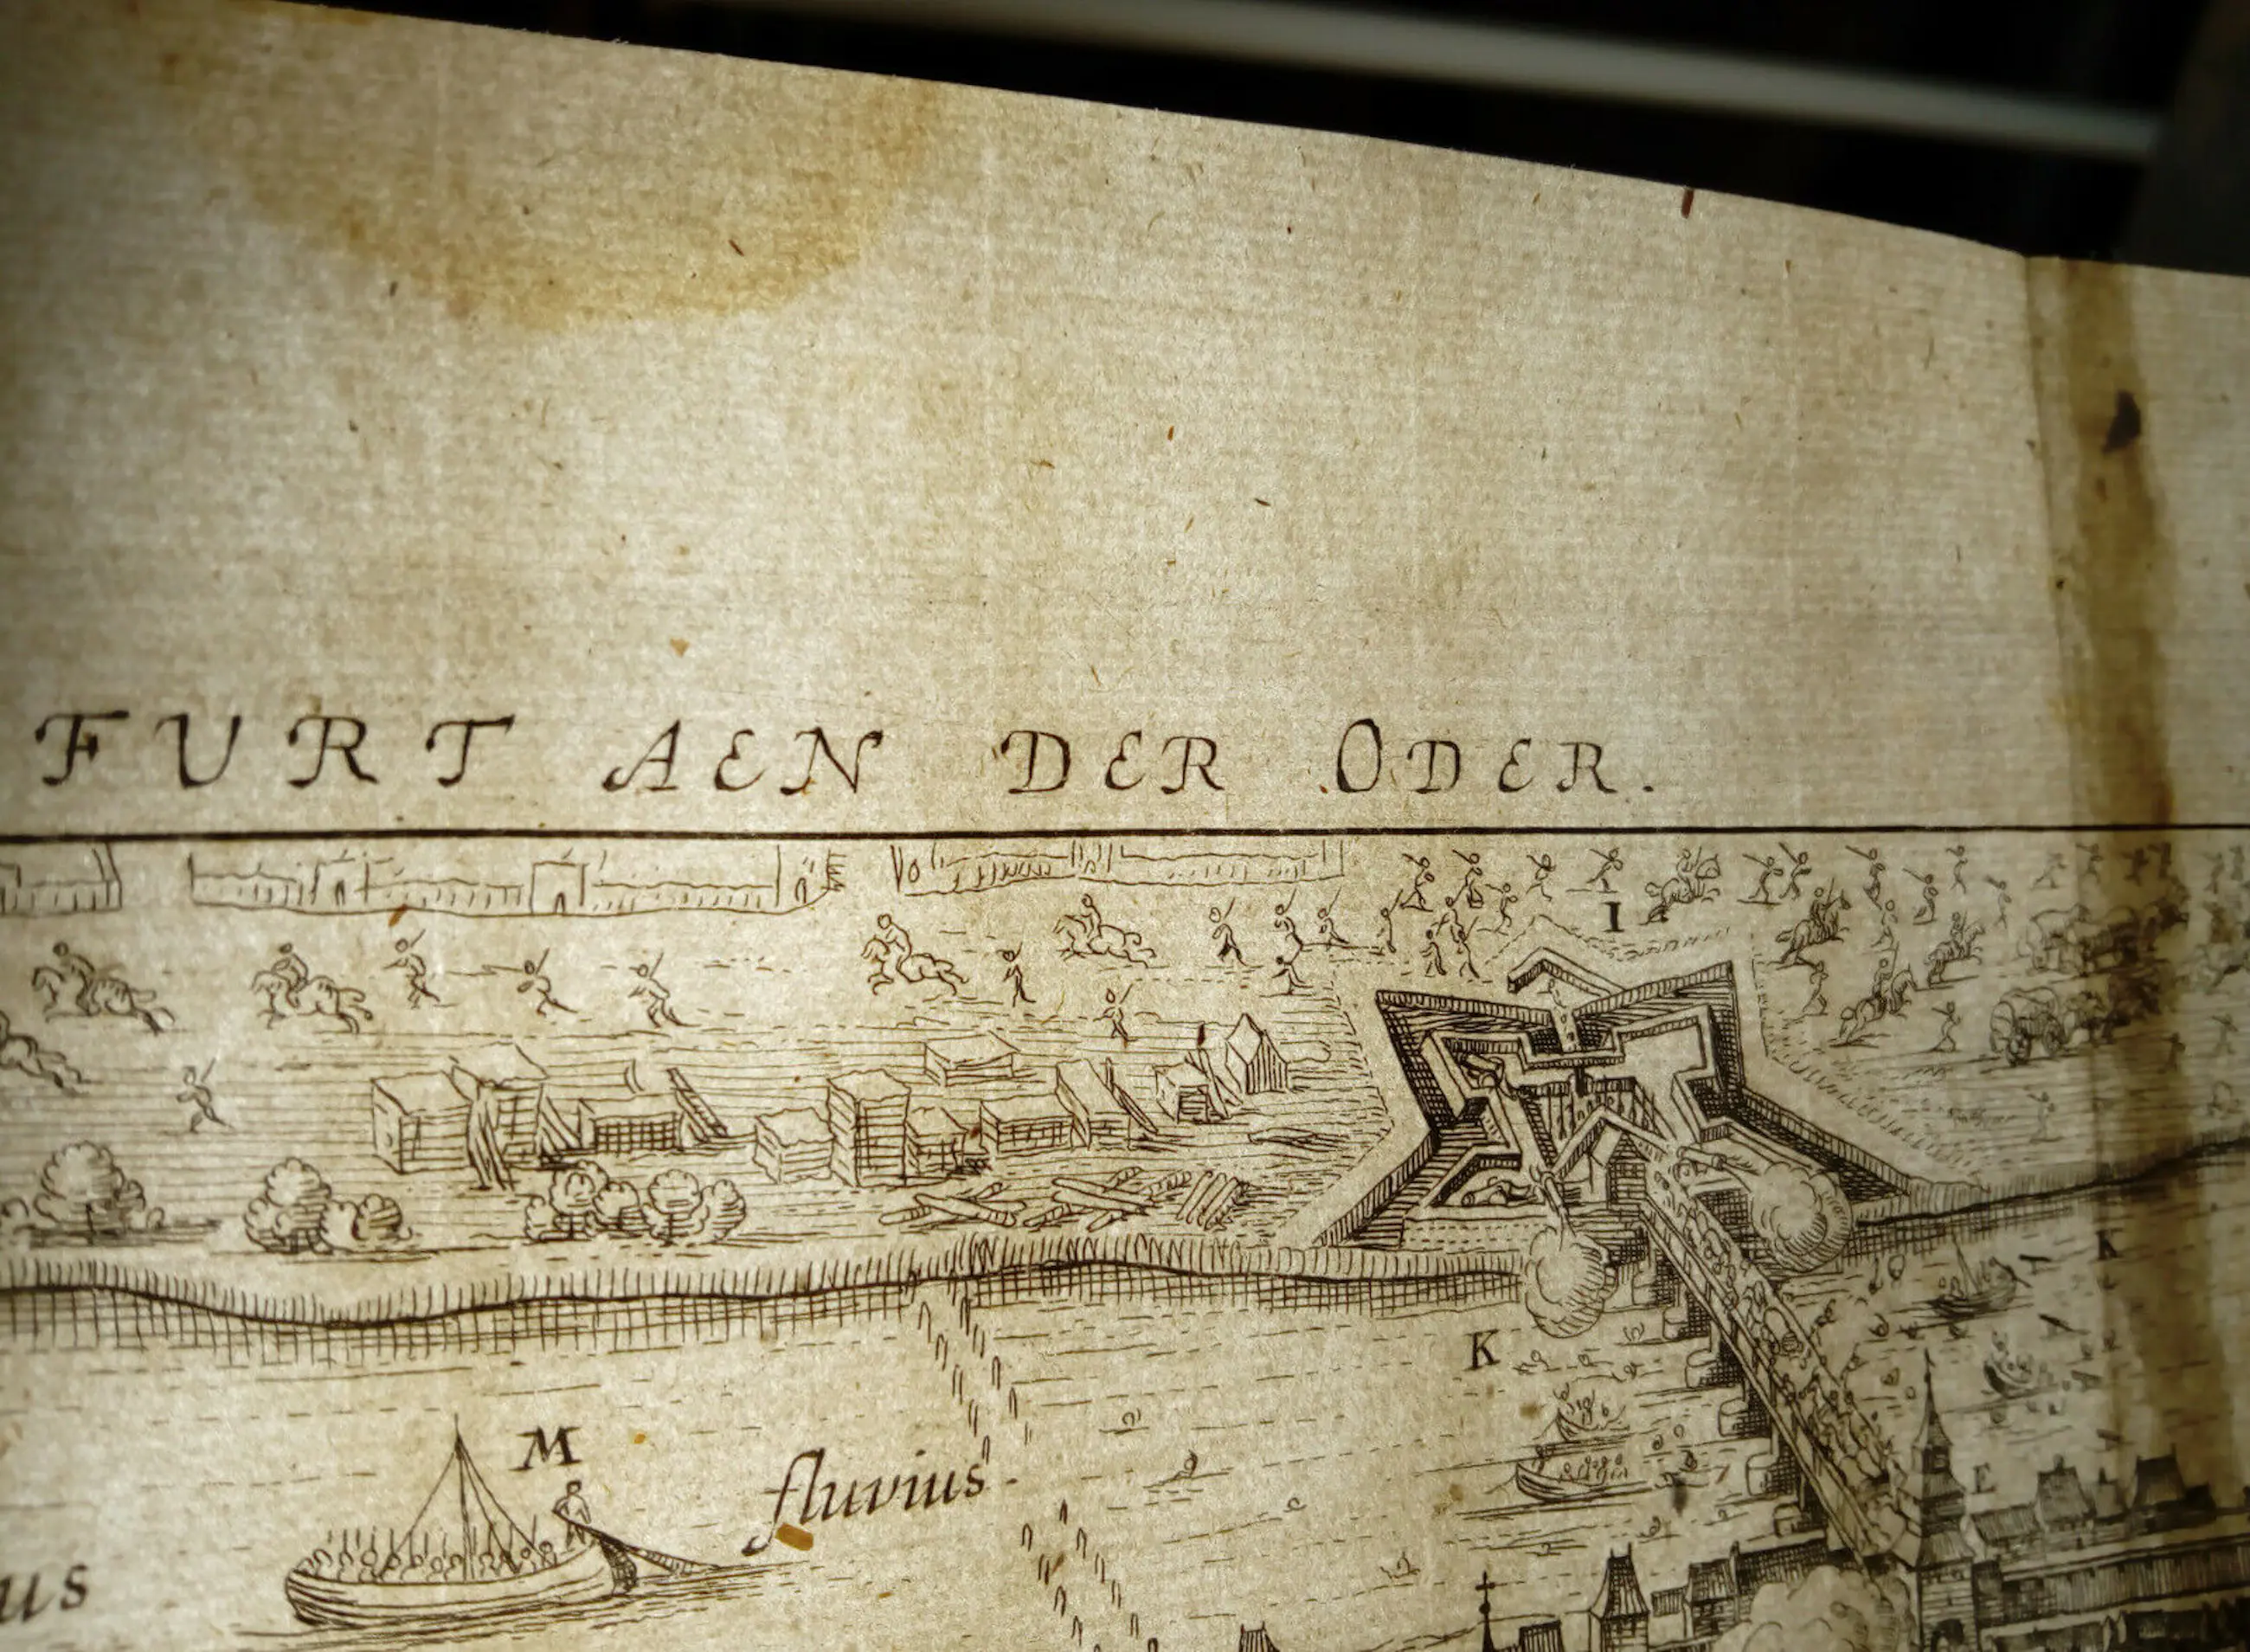 FURT AEN DER ODER.
I
K
K
M
fluvius
E
us